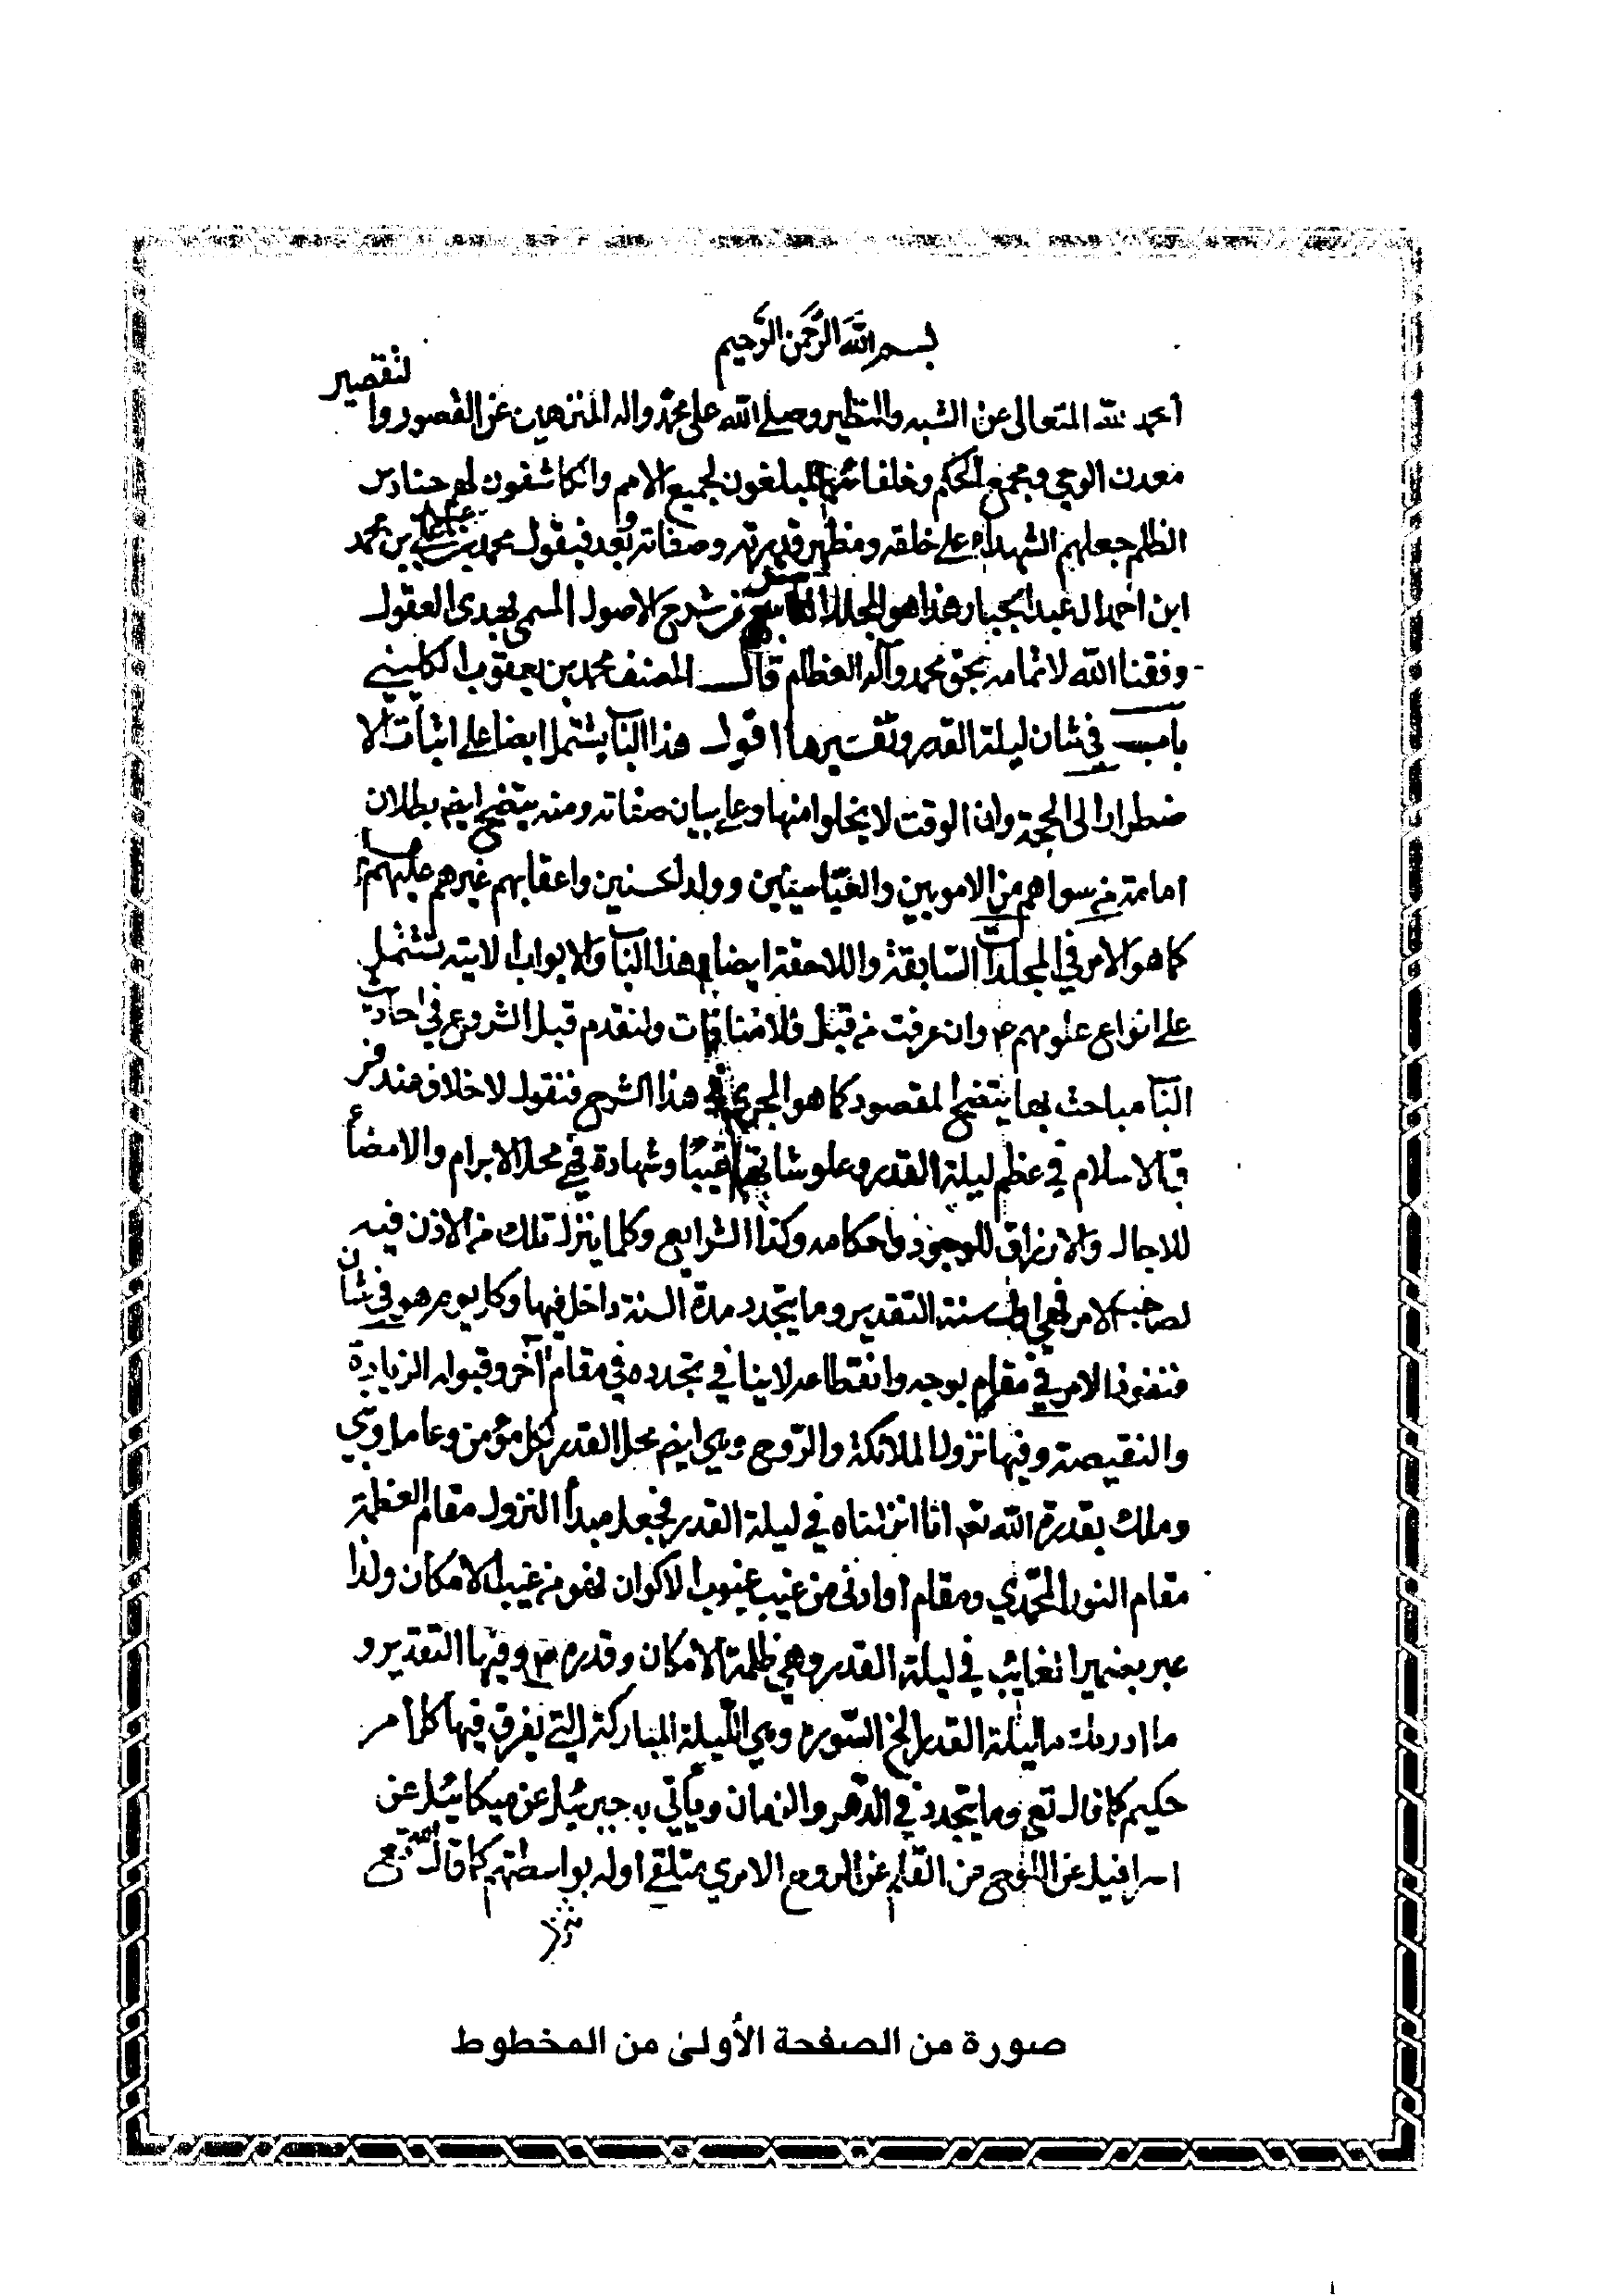 بسم الله الرحمن الرحيم
الحمد لله المتعالى عن الشبه والنظير وصلى الله على محمد واله المنزهين عن القصور والتقصير
معدن الوحى ومجمع الحكم وخلفائه المبلغون لجميع الامم والكاشفون لهم حنادس
الظلم جعلهم الشهداء على خلقه ومظهر قدرته وصفاته وبعد فيقول محمد بن بن محمد
ابن احمد ال عبد الجبار هذا هو المجلد من شرح الاصول المسمى بهدى العقول
وفقنا الله لاتمامه بحق محمد وآله العظام قال المصنف محمد بن يعقوب الكليني
باب في شان ليلة القدر وتفسيرها اقول هذا الباب يشتمل ايضا على اثبات الا
ضطرار الى الحجة وان الوقت لا يخلوا منها وعلى بيان صفاته ومنه يتضح ايضم بطلان
امامة من سواهم من الامويين والعباسيين وولد الحسنين واعقابهم غيرهم عليهم
كما هو الامر في المجلدات السابقة واللاحقة ايضا هذا الباب والابواب الاتية تشتمل
على انواع علومهم ع وان عرفت من قبل فلا منافات ولنقدم قبل الشروع في احاديث
الباب مباحث بها يتضح المقصود كما هو المجرى في هذا الشرح فنقول لا خلاف عند فر
ق الاسلام في عظم ليلة القدر وعلو شانها غيبا وشهادة فهي محل الابرام والامضاء
للاجال والارزاق للوجود واحكامه وكذا الشرايع وكلما ينزل تلك من الاذن فيه
لصاحب الامر فهي اول سنة التقدير وما يتجدد مدة السنة داخل فيها وكل يوم هو في شان
فنفوذ الامر في مقام بوجه وانقطاعه لا ينافي تجدده في مقام آخر وقبوله الزيادة
والنقيصة وفيها نزول الملائكة والروح وهي ايضم محل القدر لكل مؤمن وعامل
وملك بقدرة الله تعم انا انزلناه في ليلة القدر فجعل مبدأ النزول مقام العظمة
مقام النور المحمدي ومقام او ادنى من غيب غيوب الاكوان فهو من غيب الامكان ولذا
عبر بضمير الغايب في ليلة القدر وهي ظلمة الامكان و ع وفيها التقدير و
ما ادريك ما ليلة القدر الخ السورة وهي الليلة المباركة التي يفرق فيها كل امر
حكيم كما قال تع وما يتجدد في الدهر والزمان وياتي به جبرئيل عن ميكائيل عن
اسرافيل عن اللوح عن القلم عن الروح الامري يتلقى اوله بواسطتهم كما قال الله تع
صورة من الصفحة الأولىٰ من المخطوط